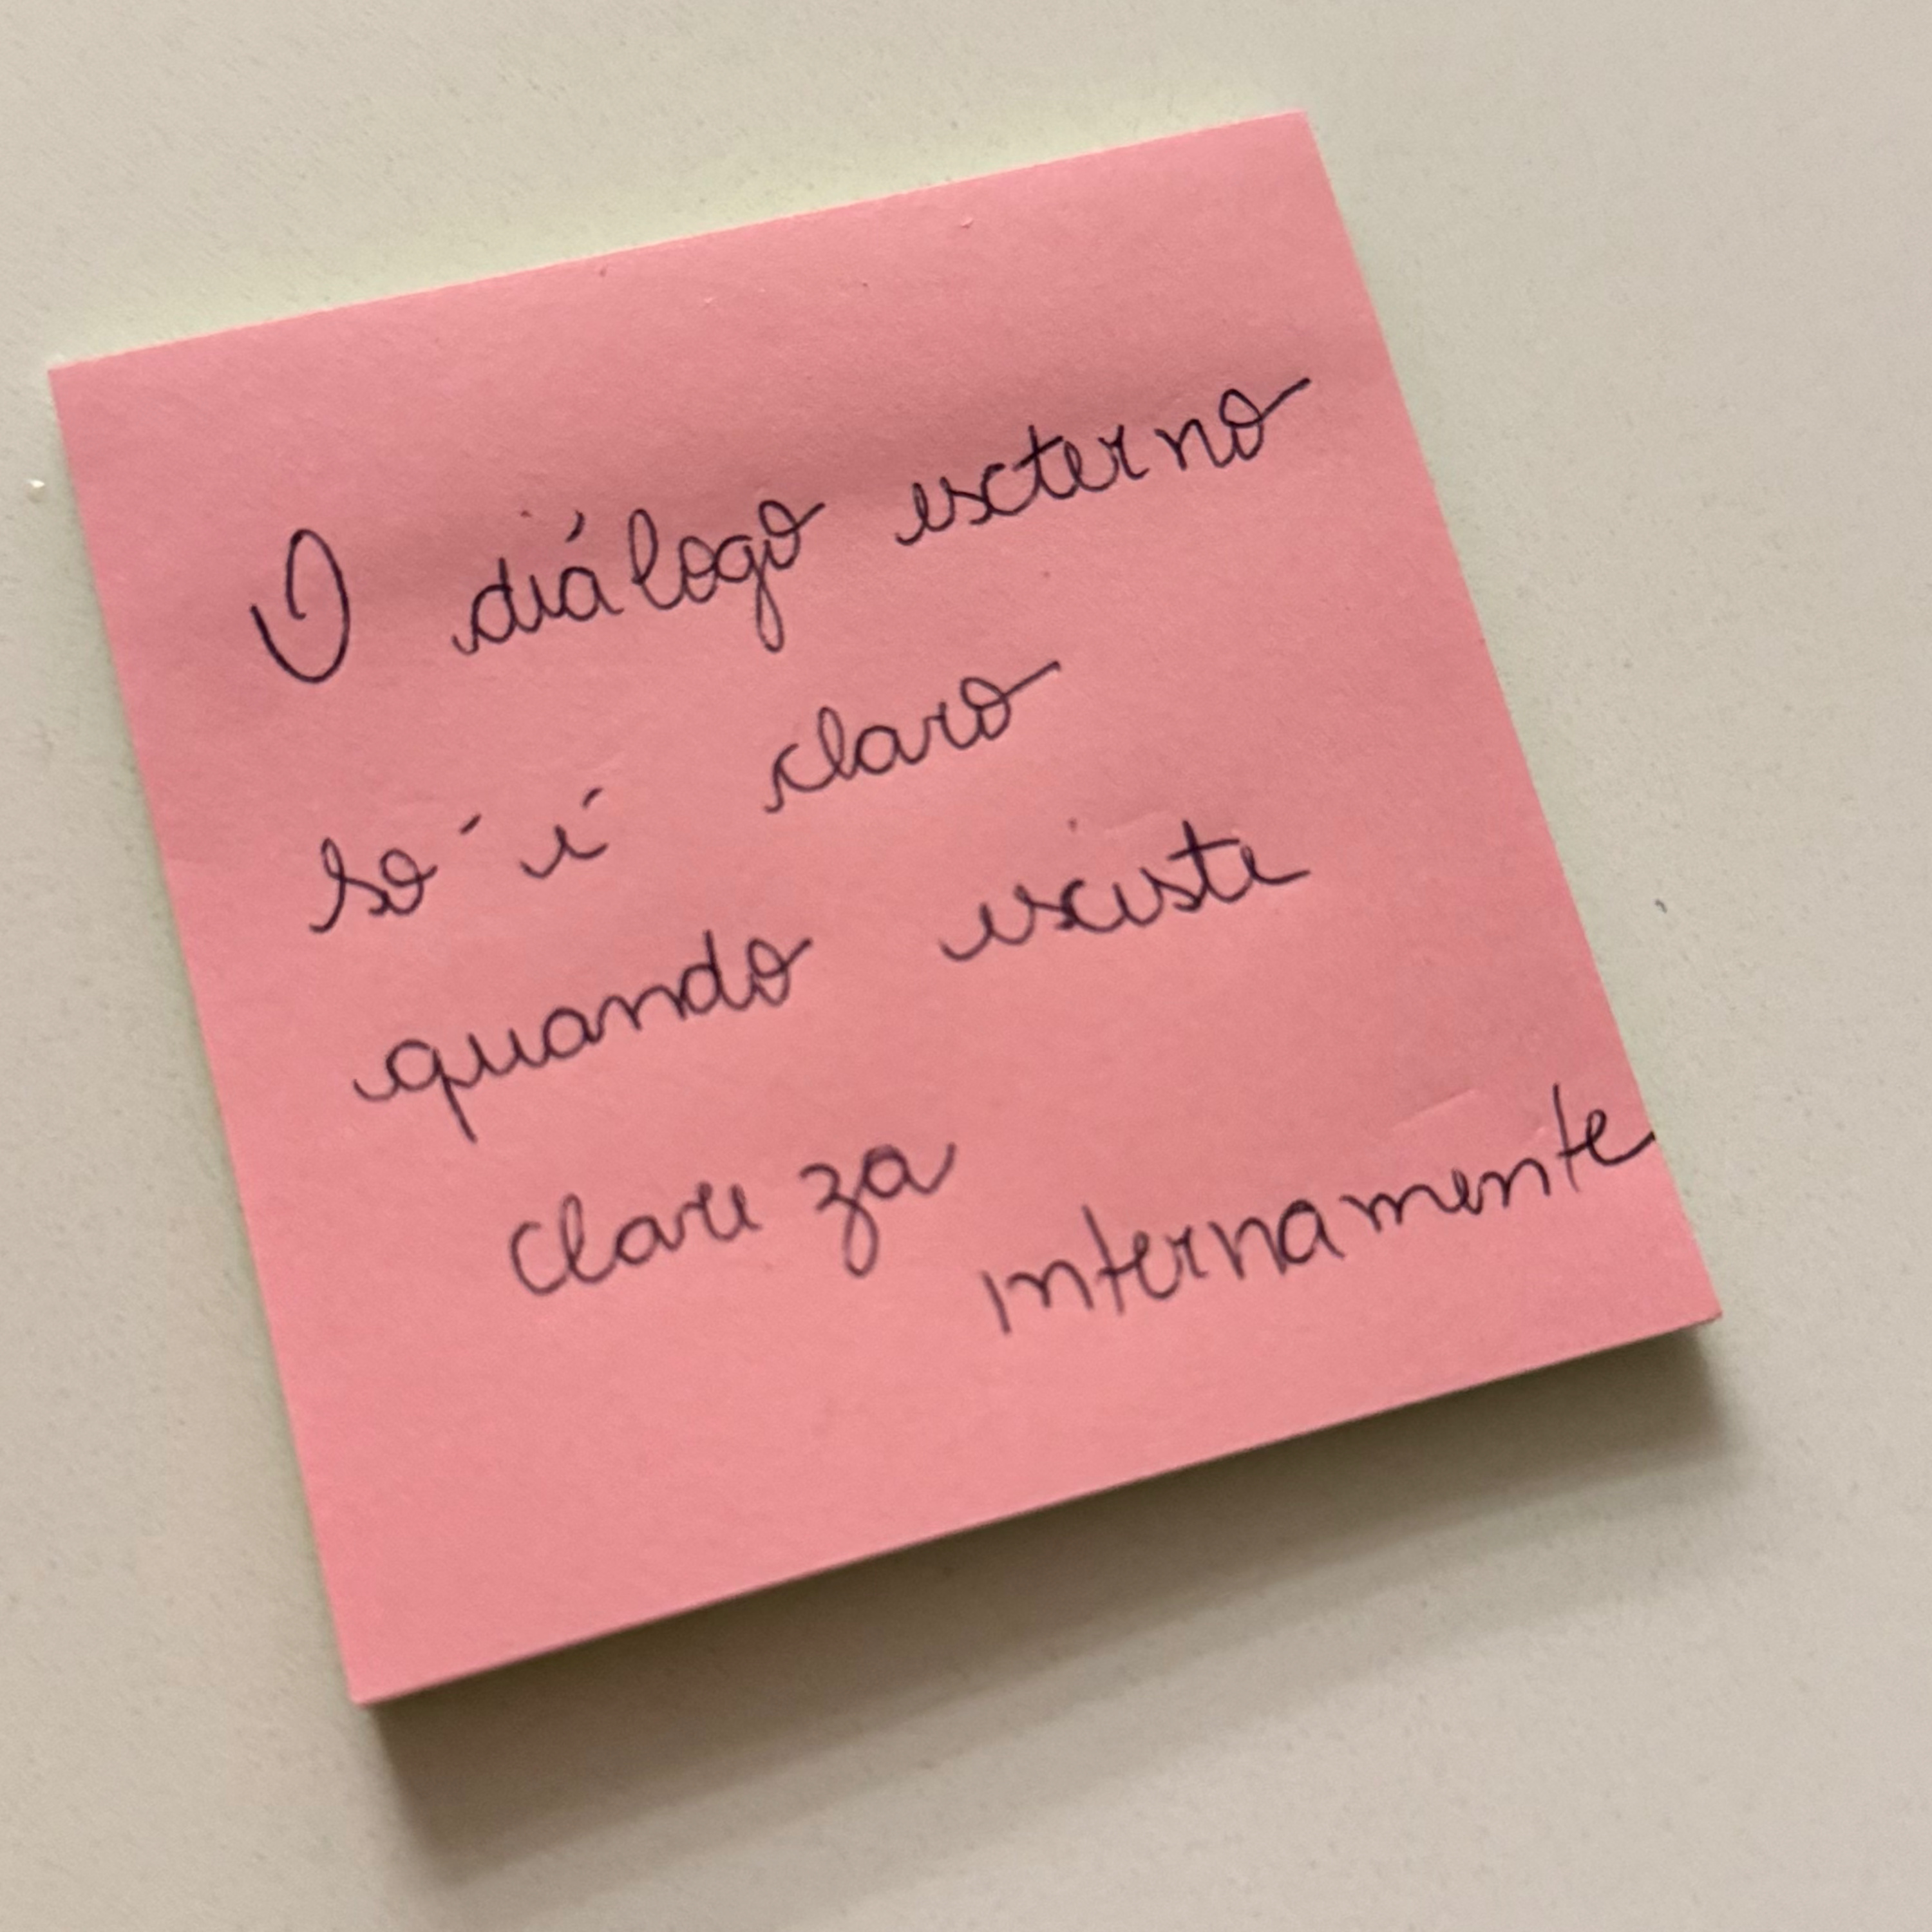 O diálogo externo
só é claro
quando existe
clareza internamente